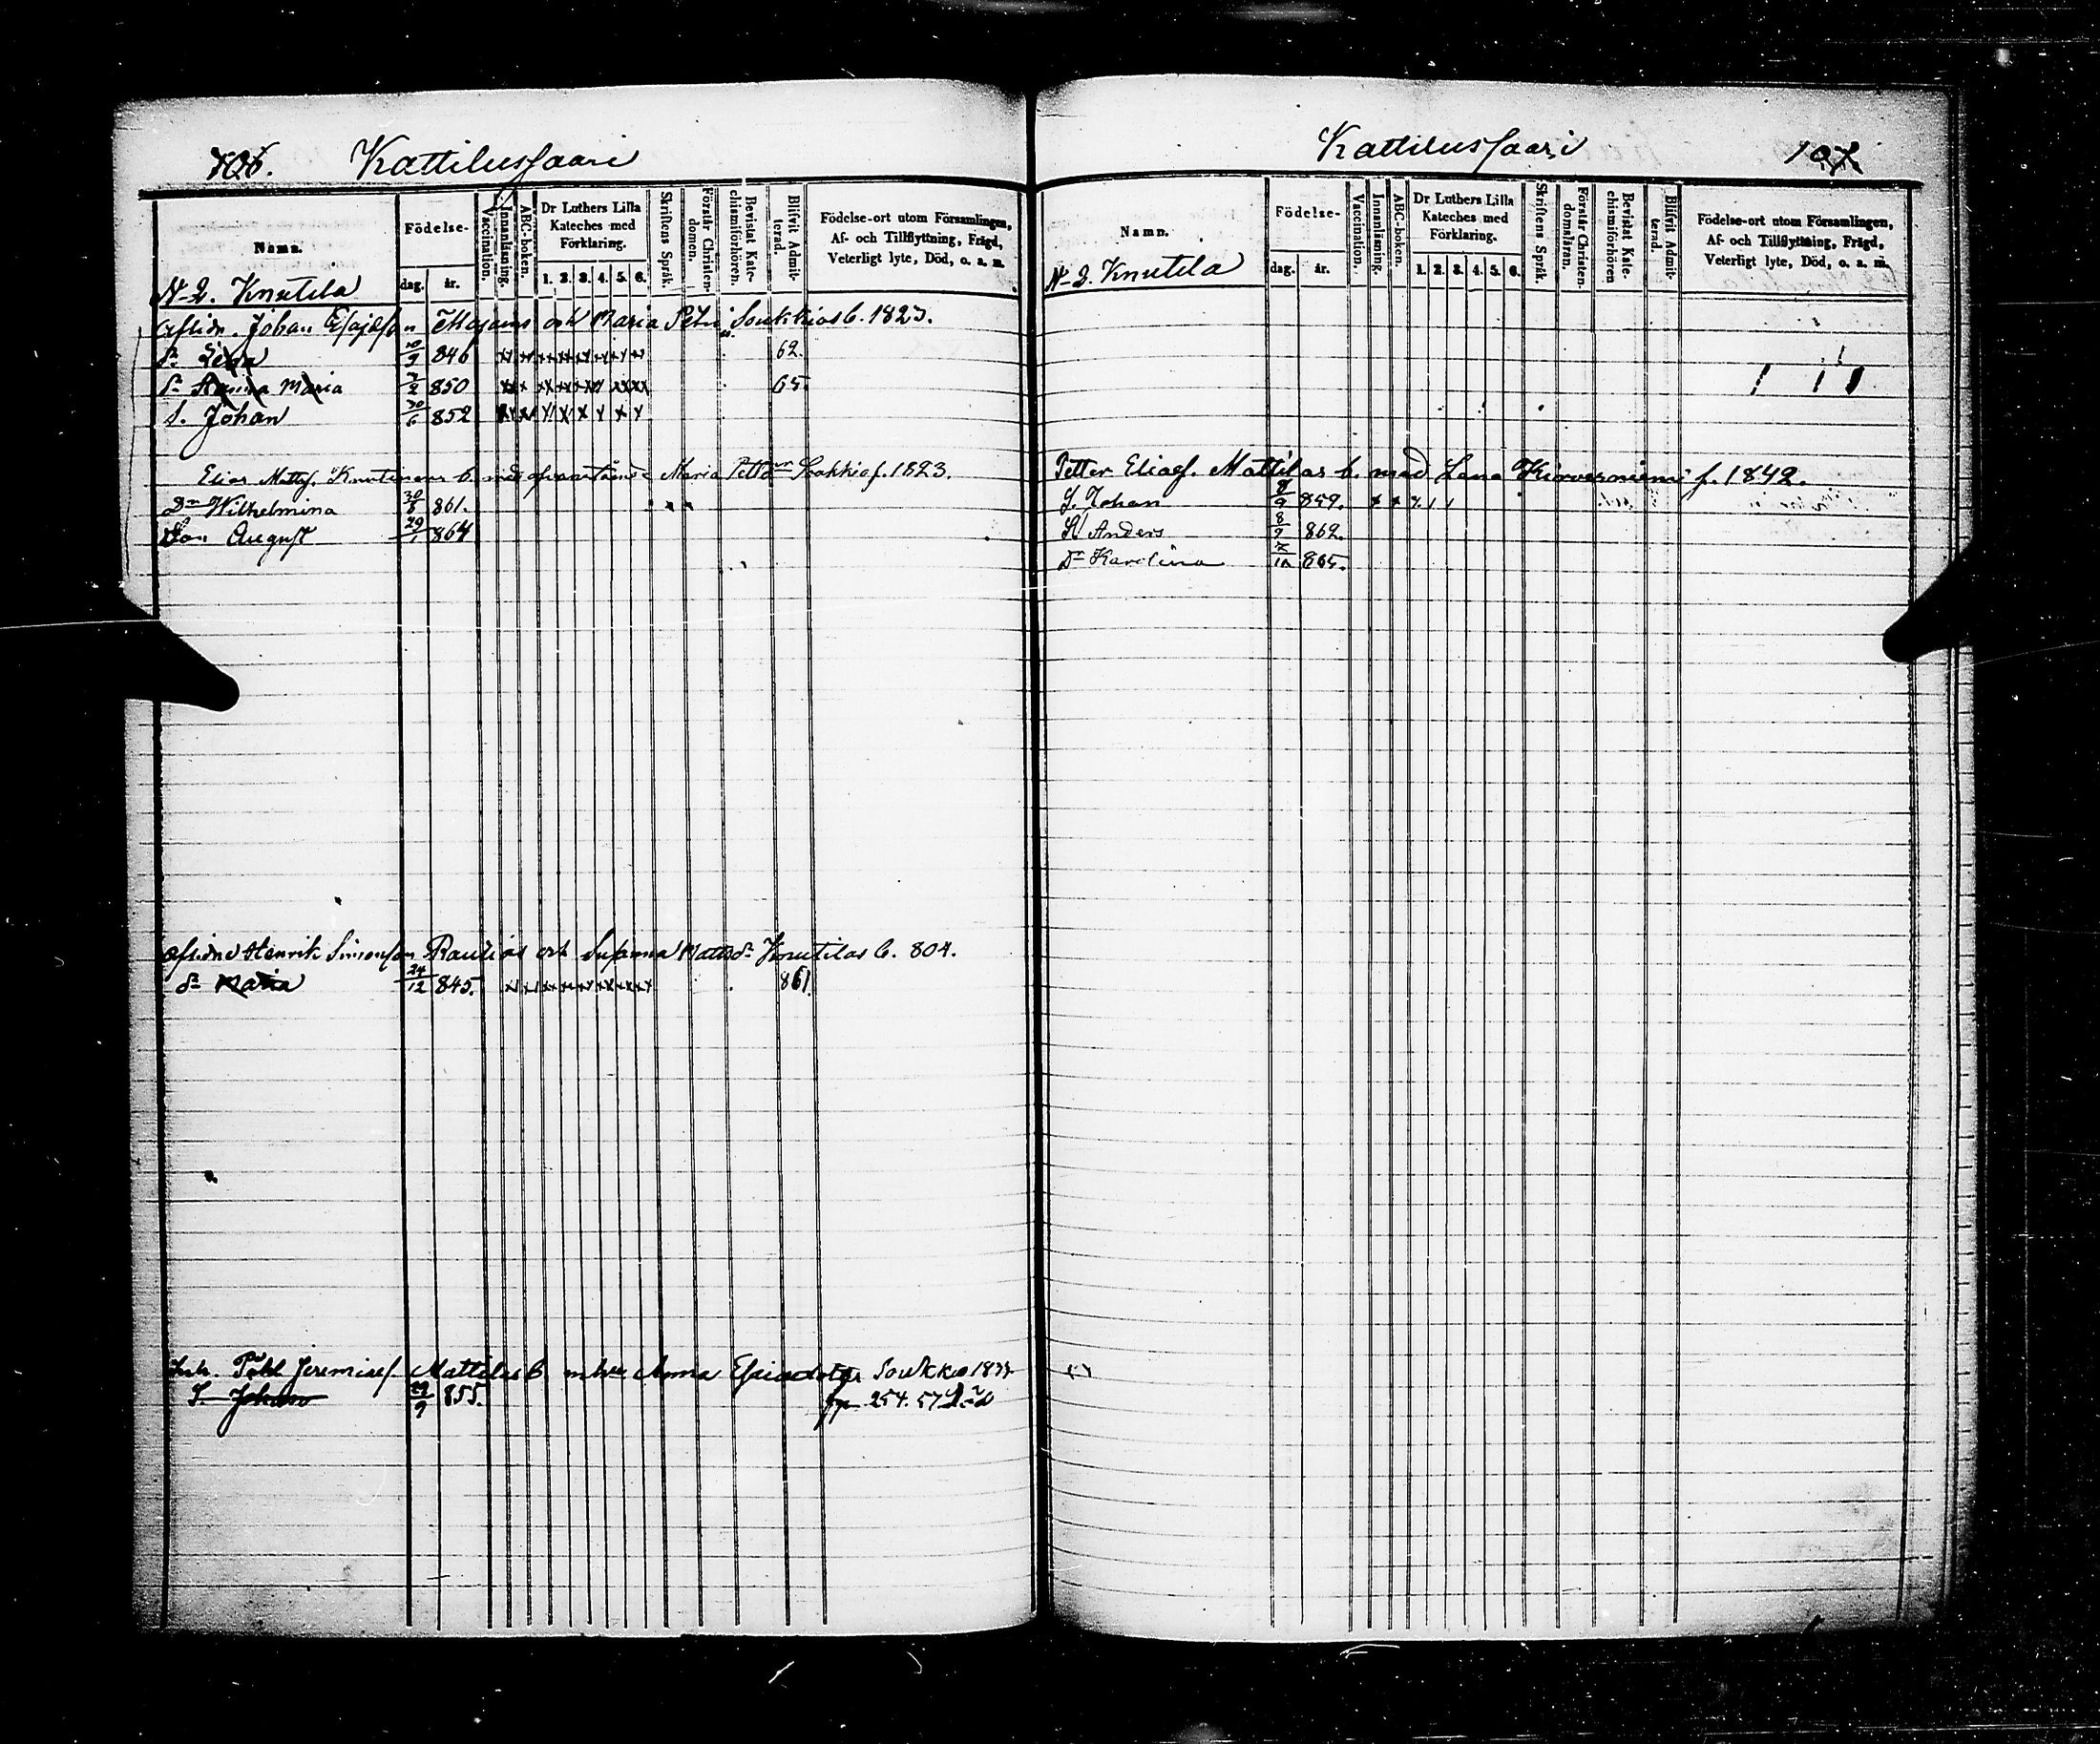 106. Kattilussaari
Namn.
Födelse-
dag. år.
Vaccination.
Innanläsning.
ABC-boken.
Dr Luthers Lilla Kateches med Förklaring.
1. 2. 3. 4. 5. 6.
Skriftens Språk.
Förstår Christendomen.
Bevistat Katechismiförhören.
Blifvit Admitterad.
Födelse-ort utom Församlingen, Af- och Tillflyttning, Frägd, Veterligt lyte, Död, o. a. m.
N-2. Knutila
Aflidn. Johan Esajæson och Maria Petri Soukkios b. 1823.
dr Lena 10/9 846 62.
dr Maria 7/2 850 65.
S. Johan 30/6 852
Elias Matts. b. med ofvanstående Maria f. 1823.
Dr Wilhelmina 861.
Son August 29/1 864
Aflidne Henrik Simonson Rautios och Susanna Mattsdr Knutilas b. 804.
dr Maria 24/12 845. 861.
Jeremiæs. Mattilas b. Anna Soukko
S. Johan 29/9 855. 254. 57
Kattilussaari 107
Namn.
Födelse-
dag. år.
Vaccination.
Innanläsning.
ABC-boken.
Dr Luthers Lilla Kateches med Förklaring.
1. 2. 3. 4. 5. 6.
Skriftens Språk.
Förstår Christendomsläran.
Bevistat Katechismiförhören
Blifvit Admitterad.
Födelse-ort utom Församlingen, Af- och Tillflyttning, Frägd, Veterligt lyte, Död, o. a. m.
N-2. Knutila
Petter Eliæs. Mattilas b. med Lena f. 1842.
S. Johan 8/9 859.
S. Anders 8/9 862.
Dr Karolina 865.